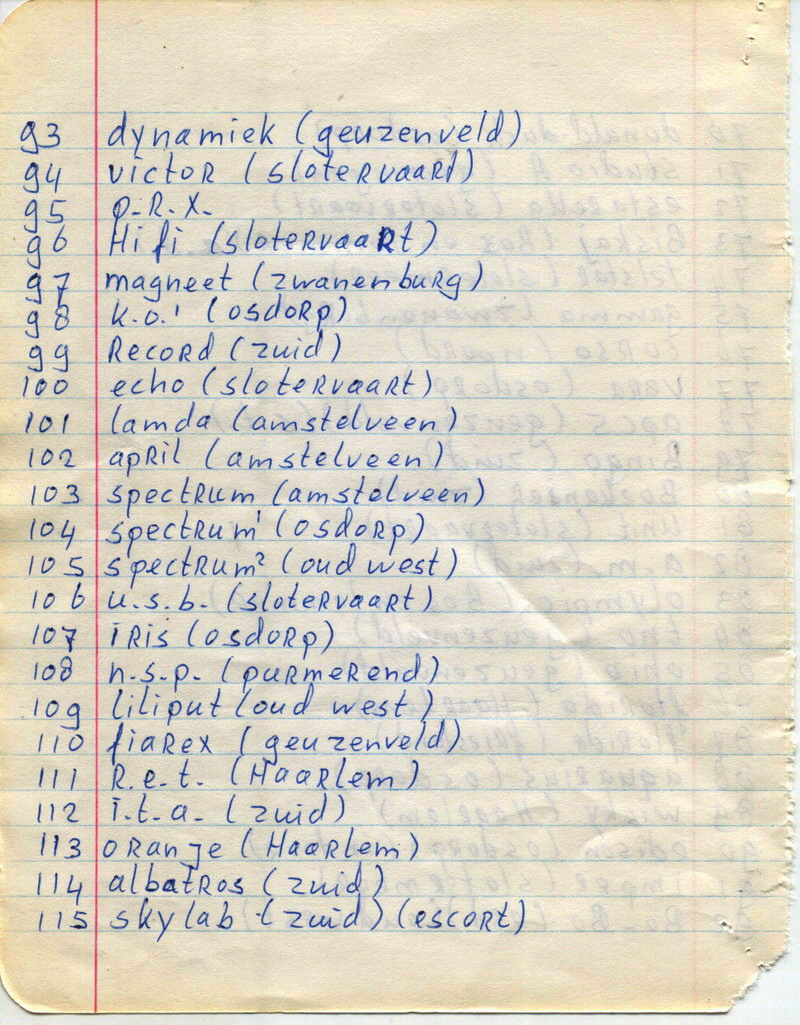 93 dynamiek (geuzenveld)
94 victoR (sloteRvaaRt)
95 p.R.X.
96 Hifi (sloteRvaaRt)
97 magneet (zwanenbuRg)
98 k.o.' (osdoRp)
99 RecoRd (zuid)
100 echo (sloteRvaaRt)
101 lamda (amstelveen)
102 apRil (amstelveen)
103 spectRum (amstelveen)
104 spectRum' (osdoRp)
105 spectRum² (oud west)
106 u.s.b. (sloteRvaaRt)
107 iRis (osdoRp)
108 n.s.p. (puRmeRend)
109 liliput (oud west)
110 fiaRex (geuzenveld)
111 R.e.t. (HaaRlem)
112 i.t.a. (zuid)
113 oRanje (HaaRlem)
114 albatRos (zuid)
115 skylab (zuid) (escoRt)